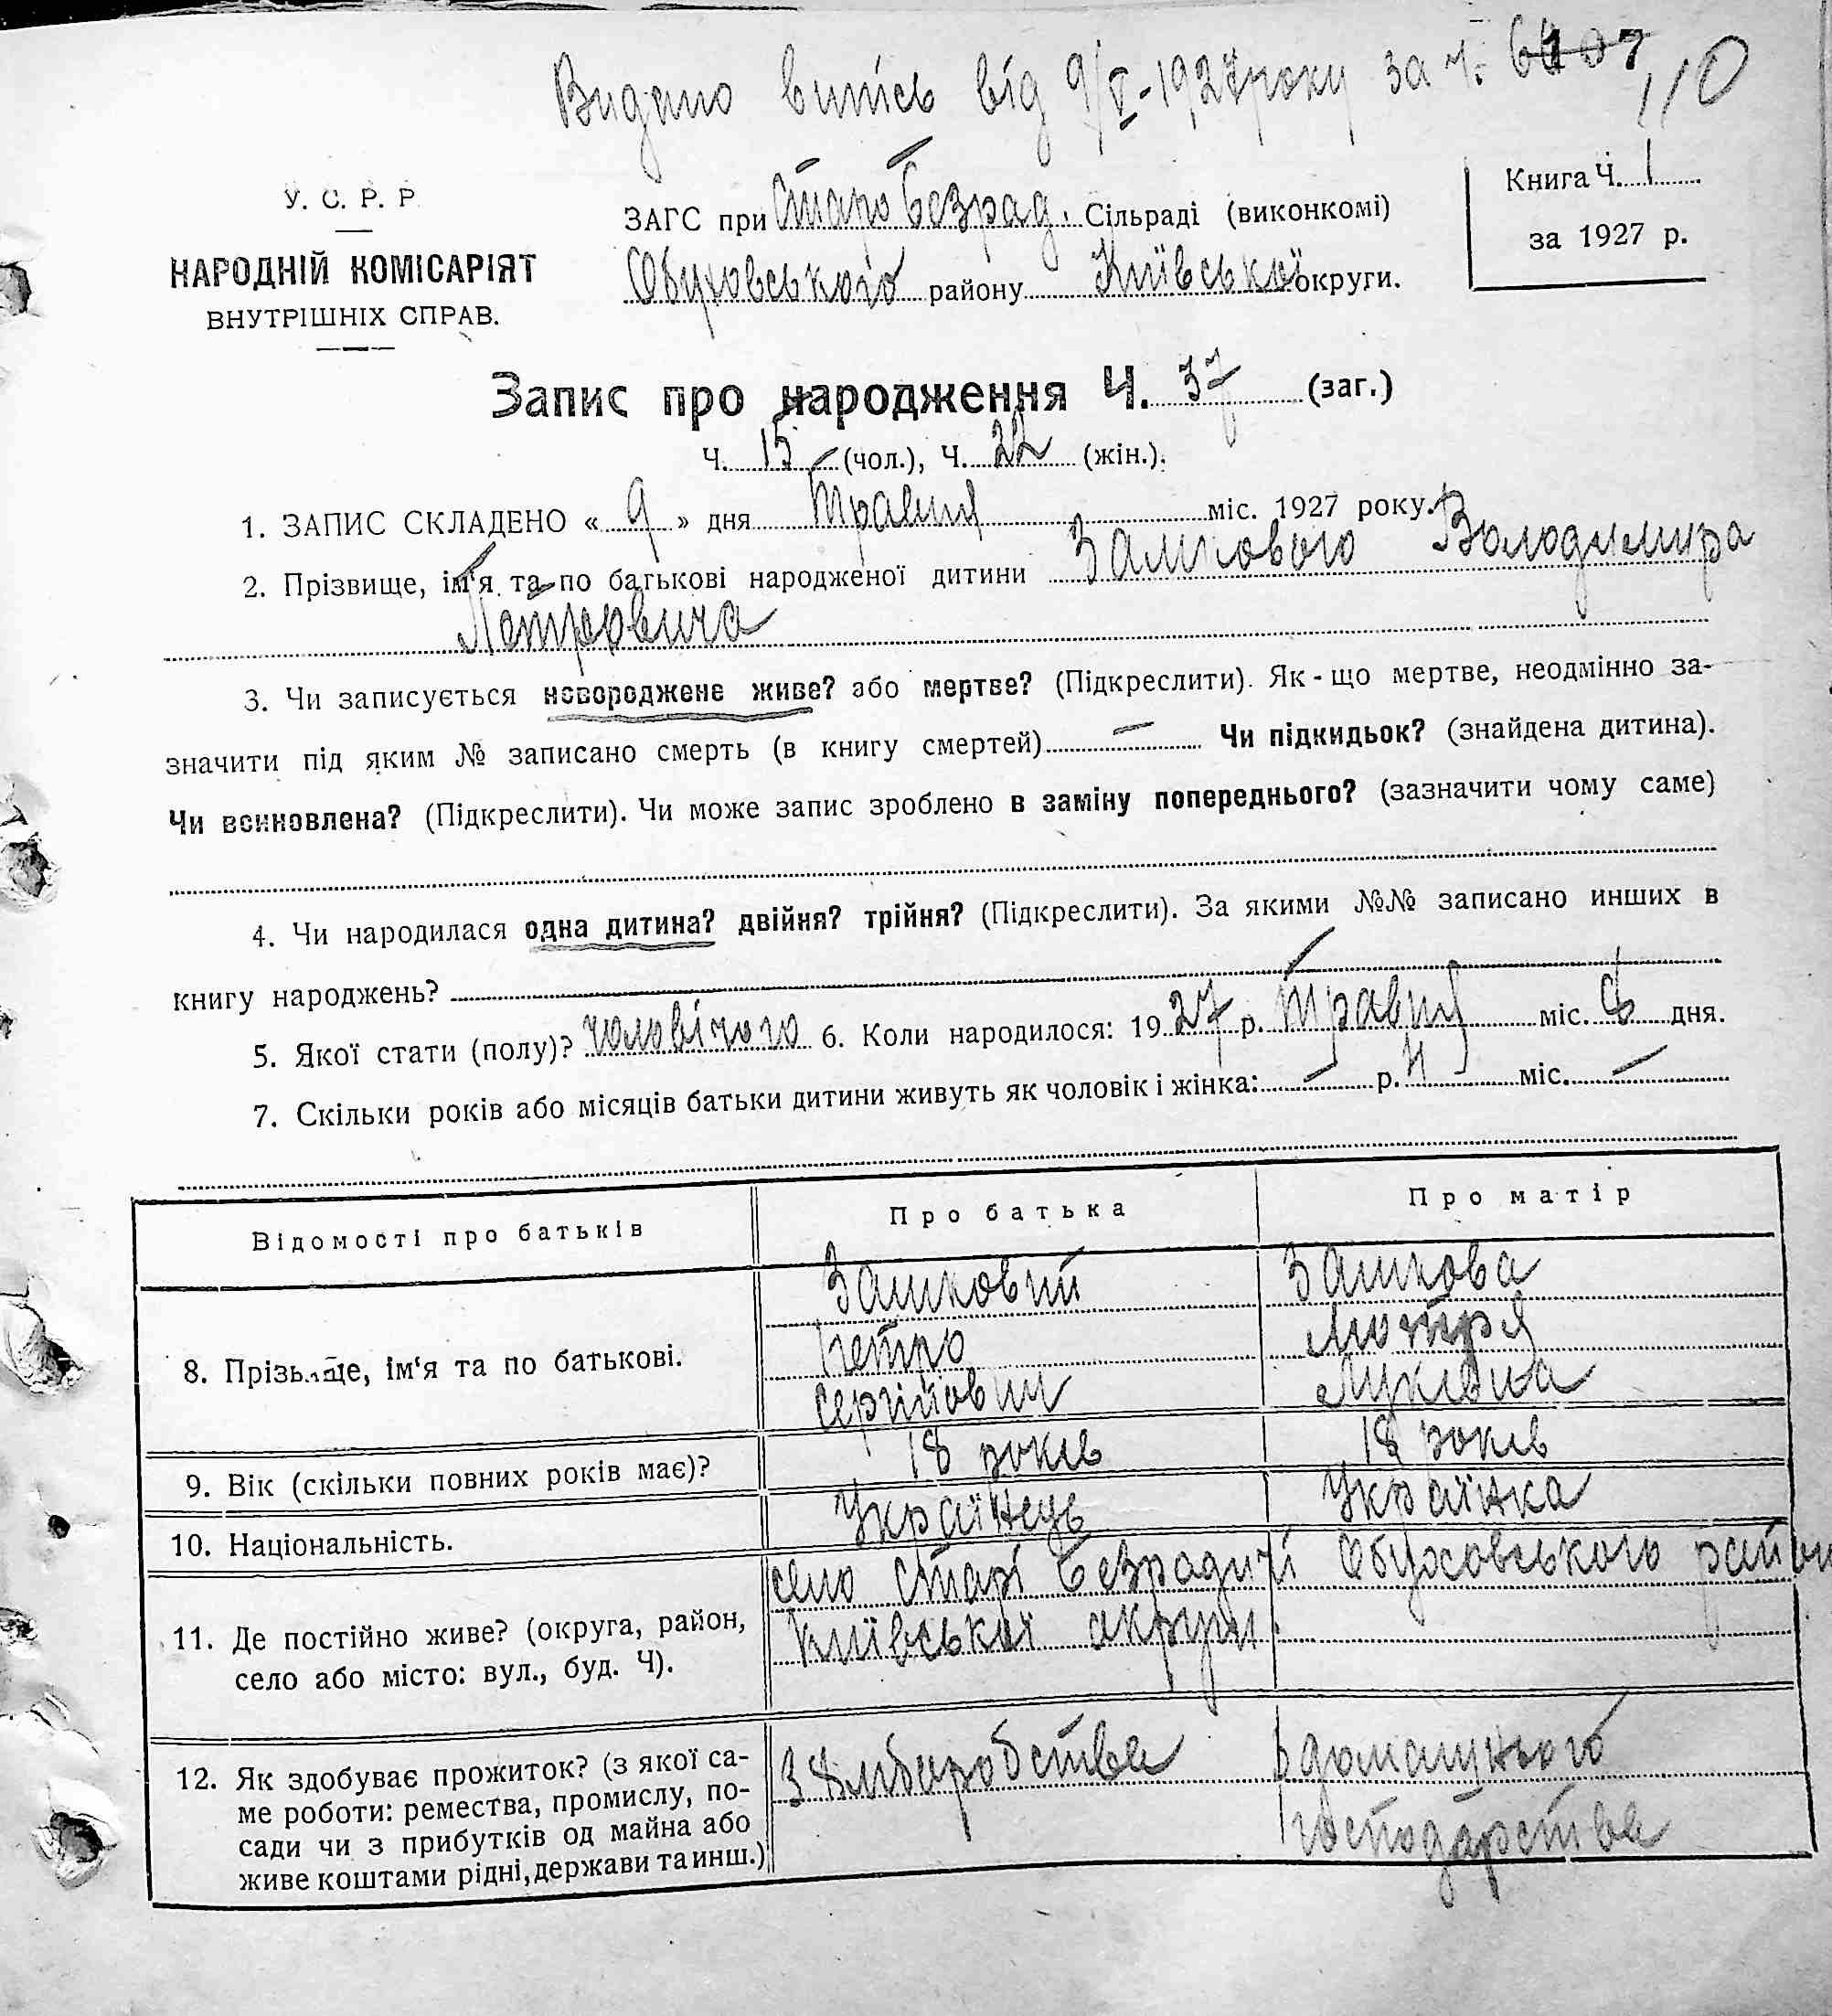 Видано витісь від 9/V-1927 року за ч. 107
110
У. С. Р. Р
НАРОДНІЙ КОМІСАРІЯТ
ВНУТРІШНІХ СПРАВ.
ЗАГС при Старо Безрад. Сільраді (виконкомі)
Обуховського району Київської округи.
Книга Ч. 1
за 1927 р.
Запис про народження Ч. 37 (заг.)
Ч. 15 (чол.), Ч. 22 (жін.).
1. ЗАПИС СКЛАДЕНО « 9 » дня травня міс. 1927 року.
2. Прізвище, ім'я та по батькові народженої дитини Замкового Володимира
Петровича
3. Чи записується новороджене живе? або мертве? (Підкреслити). Як-що мертве, неодмінно за-
значити під яким № записано смерть (в книгу смертей) — Чи підкидьок? (знайдена дитина).
Чи всиновлена? (Підкреслити). Чи може запис зроблено в заміну попереднього? (зазначити чому саме)
4. Чи народилася одна дитина? двійня? трійня? (Підкреслити). За якими №№ записано инших в
книгу народжень?
5. Якої стати (полу)? чоловічого 6. Коли народилося: 1927 р. травня міс. 8 дня.
7. Скільки років або місяців батьки дитини живуть як чоловік і жінка: — р. міс. —
Відомості про батьків Про батька Про матір
8. Прізвище, ім'я та по батькові. Замковий Замкова
Петро Мотря
Сергійович Луківна
9. Вік (скільки повних років має)? 18 років 18 років
10. Національність. Українець Українка
11. Де постійно живе? (округа, район,
село або місто: вул., буд. Ч).
село Старі Безрадичі Обуховського район
Київської округи
12. Як здобуває прожиток? (з якої са-
ме роботи: ремества, промислу, по-
сади чи з прибутків од майна або
живе коштами рідні, держави та инш.)
З хліборобства з домашнього
господарства